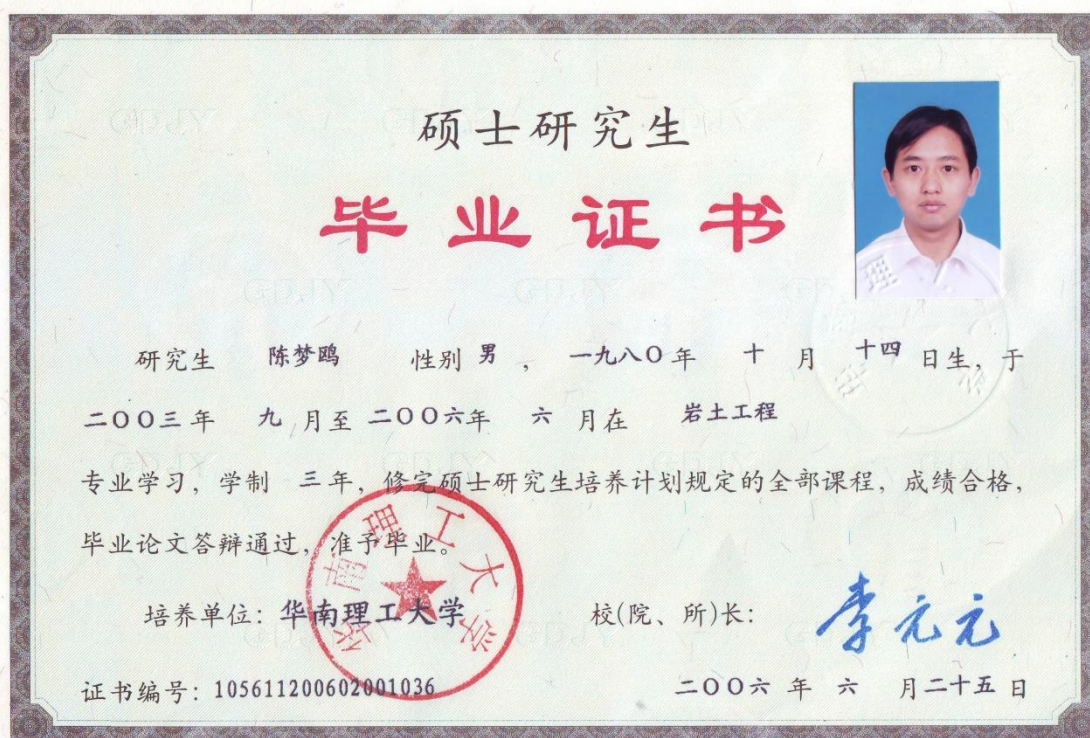 硕士研究生
毕业证书
研究生 陈梦鸥 性别 男 , 一九八〇年 十 月 十四 日生, 于
二〇〇三年 九 月至 二〇〇六年 六 月在 岩土工程
专业学习, 学制 三年, 修完硕士研究生培养计划规定的全部课程, 成绩合格,
毕业论文答辩通过, 准予毕业。
培养单位: 华南理工大学 校(院、所)长: 李元元
证书编号: 105611200602001036 二〇〇六 年 六 月二十五日
华南理工大学